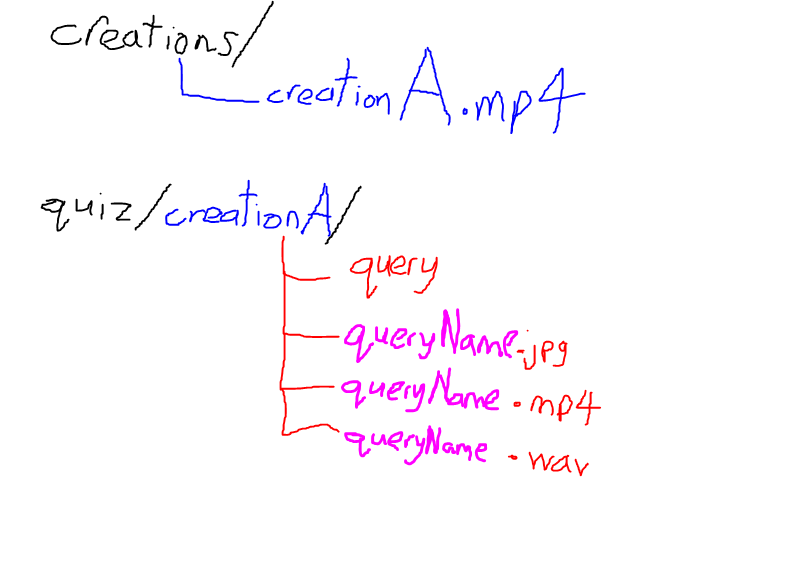 creations/
creationA.mp4
quiz/creationA/
query
queryName.jpg
queryName.mp4
queryName.wav